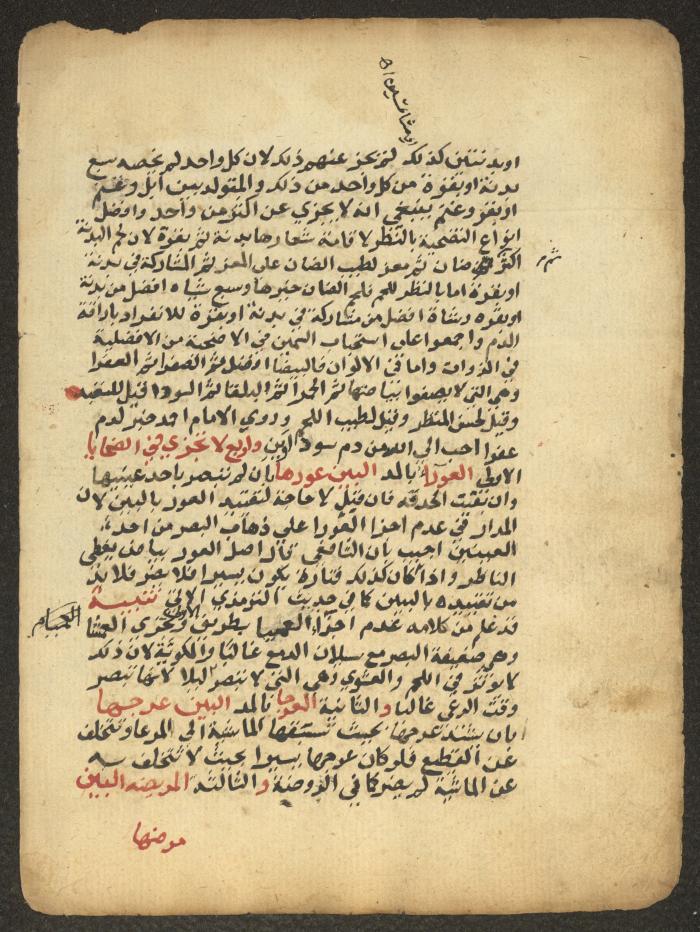 او مشاتين اه
او بدنتين كذلك لم يجز عنهم ذلك لان كل واحد لم يخصه سبع
بدنة او بقرة من كل واحد من ذلك والمتولد بين ابل وغنم
او بقر وغنم ينبغي انه لا يجزي عن اكثر من واحد وافضل
انواع التضحية بالنظر لاقامة شعارها بدنة ثم بقرة لان لحم البدنة
اكثر ثم ضان ثم معز لطيب الضان على المعز ثم المشاركة في بدنة
او بقرة اما بالنظر للحم فلحم الضان خيرها وسبع شياه افضل من بدنة
او بقره وشاة افضل من مشاركة في بدنة او بقرة للانفراد باراقة
الدم واجمعوا على استحباب السمين في الاضحية من الافضلية
في الذوات واما في الالوان فالبيضا افضل ثم الصفرا ثم العفرا
وهي التي لا يصفوا بياضها ثم الحمرا ثم البلقا ثم السودا قيل للتعبد
وقيل لحسن المنظر وقيل لطيب اللحم وروي الامام احمد خبر لدم
عفرا احب الى الله من دم سوداوين واربع لا تجزي في الضحايا
الاولى العورآ بالمد البين عورها بان لم تبصر باحد عينيها
وان بقيت الحدقه فان قيل لا حاجة لتقييد العور بالبين لان
المدار في عدم اجزا العورا على ذهاب البصر من احد
العينين اجيب بان الشافعي قال اصل العور بياض يغطي
الناظر واذا كان كذلك فتارة يكون يسيرا فلا يضر فلا بد
من تقييده بالبين كما في حديث الترمذي الاتي تنبيه
قد علم من كلامه عدم اجزاء العميا بطريق الاولى وتجزي العمشا
وهي ضعيفة البصر مع سيلان الدمع غالبا والمكوية لان ذلك
لا يوثر في اللحم والعشوي وهي التي لا تبصر ليلا لانها تبصر
وقت الرعي غالبا والثانية العرجا بالمد البين عرجها
بان يشتد عرجها بحيث تسبقها الماشية الى المرعا وتتخلف
عن القطيع فلو كان عرجها يسيرا بحيث لا تتخلف به
عن الماشية لم يضر كما في الروضة والثالثه المريضه البين
مرضها